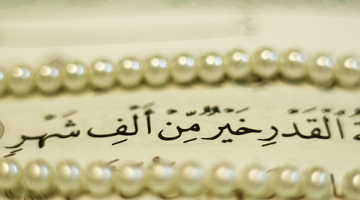 الْقَدْرِ خَيْرٌ مِّنْ أَلْفِ شَهْرٍ